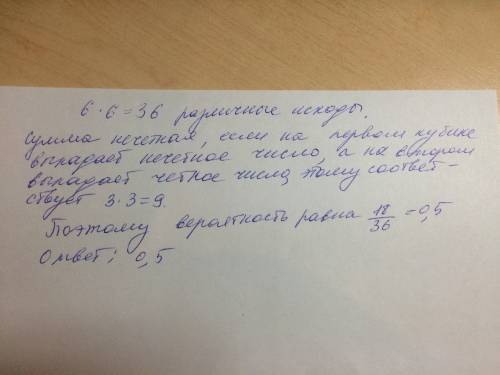 6 · 6 = 36 различные исходы.
Сумма нечетная, если на первом кубике
выпадает нечетное число, а на втором
выпадает четное число, тому соответ-
ствует 3 · 3 = 9.
Поэтому вероятность равна 18/36 = 0,5
Ответ: 0,5